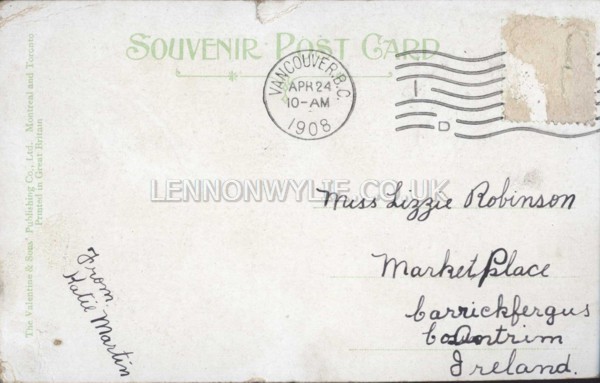 SOUVENIR POST CARD
VANCOUVER, B.C.
APR 24
10-AM
1908
I
D
LENNONWYLIE.CO.UK
Miss Lizzie Robinson
Market Place
Carrickfergus
Co Antrim
Ireland.
From
Katie Martin
The Valentine & Sons' Publishing Co., Ltd. Montreal and Toronto
Printed in Great Britain